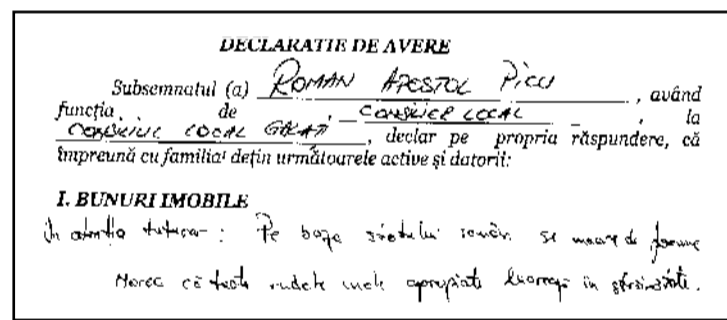 DECLARATIE DE AVERE
Subsemnatul (a) ROMAN APOSTOL PICU, având
funcția de CONSILIER LOCAL, la
CONSILIUL LOCAL GALAȚI, declar pe propria răspundere, că
împreună cu familia¹ dețin următoarele active și datorii:
I. BUNURI IMOBILE
În atenția tuturor: Pe baza statului român se moare de foame
Noroc că toate rudele mele apropiate lucrează în străinătate.